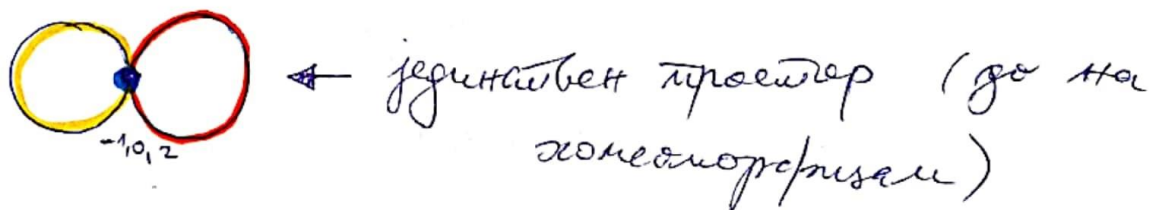 -1,0,2
← јединствен простор (до на
хомеоморфизам)